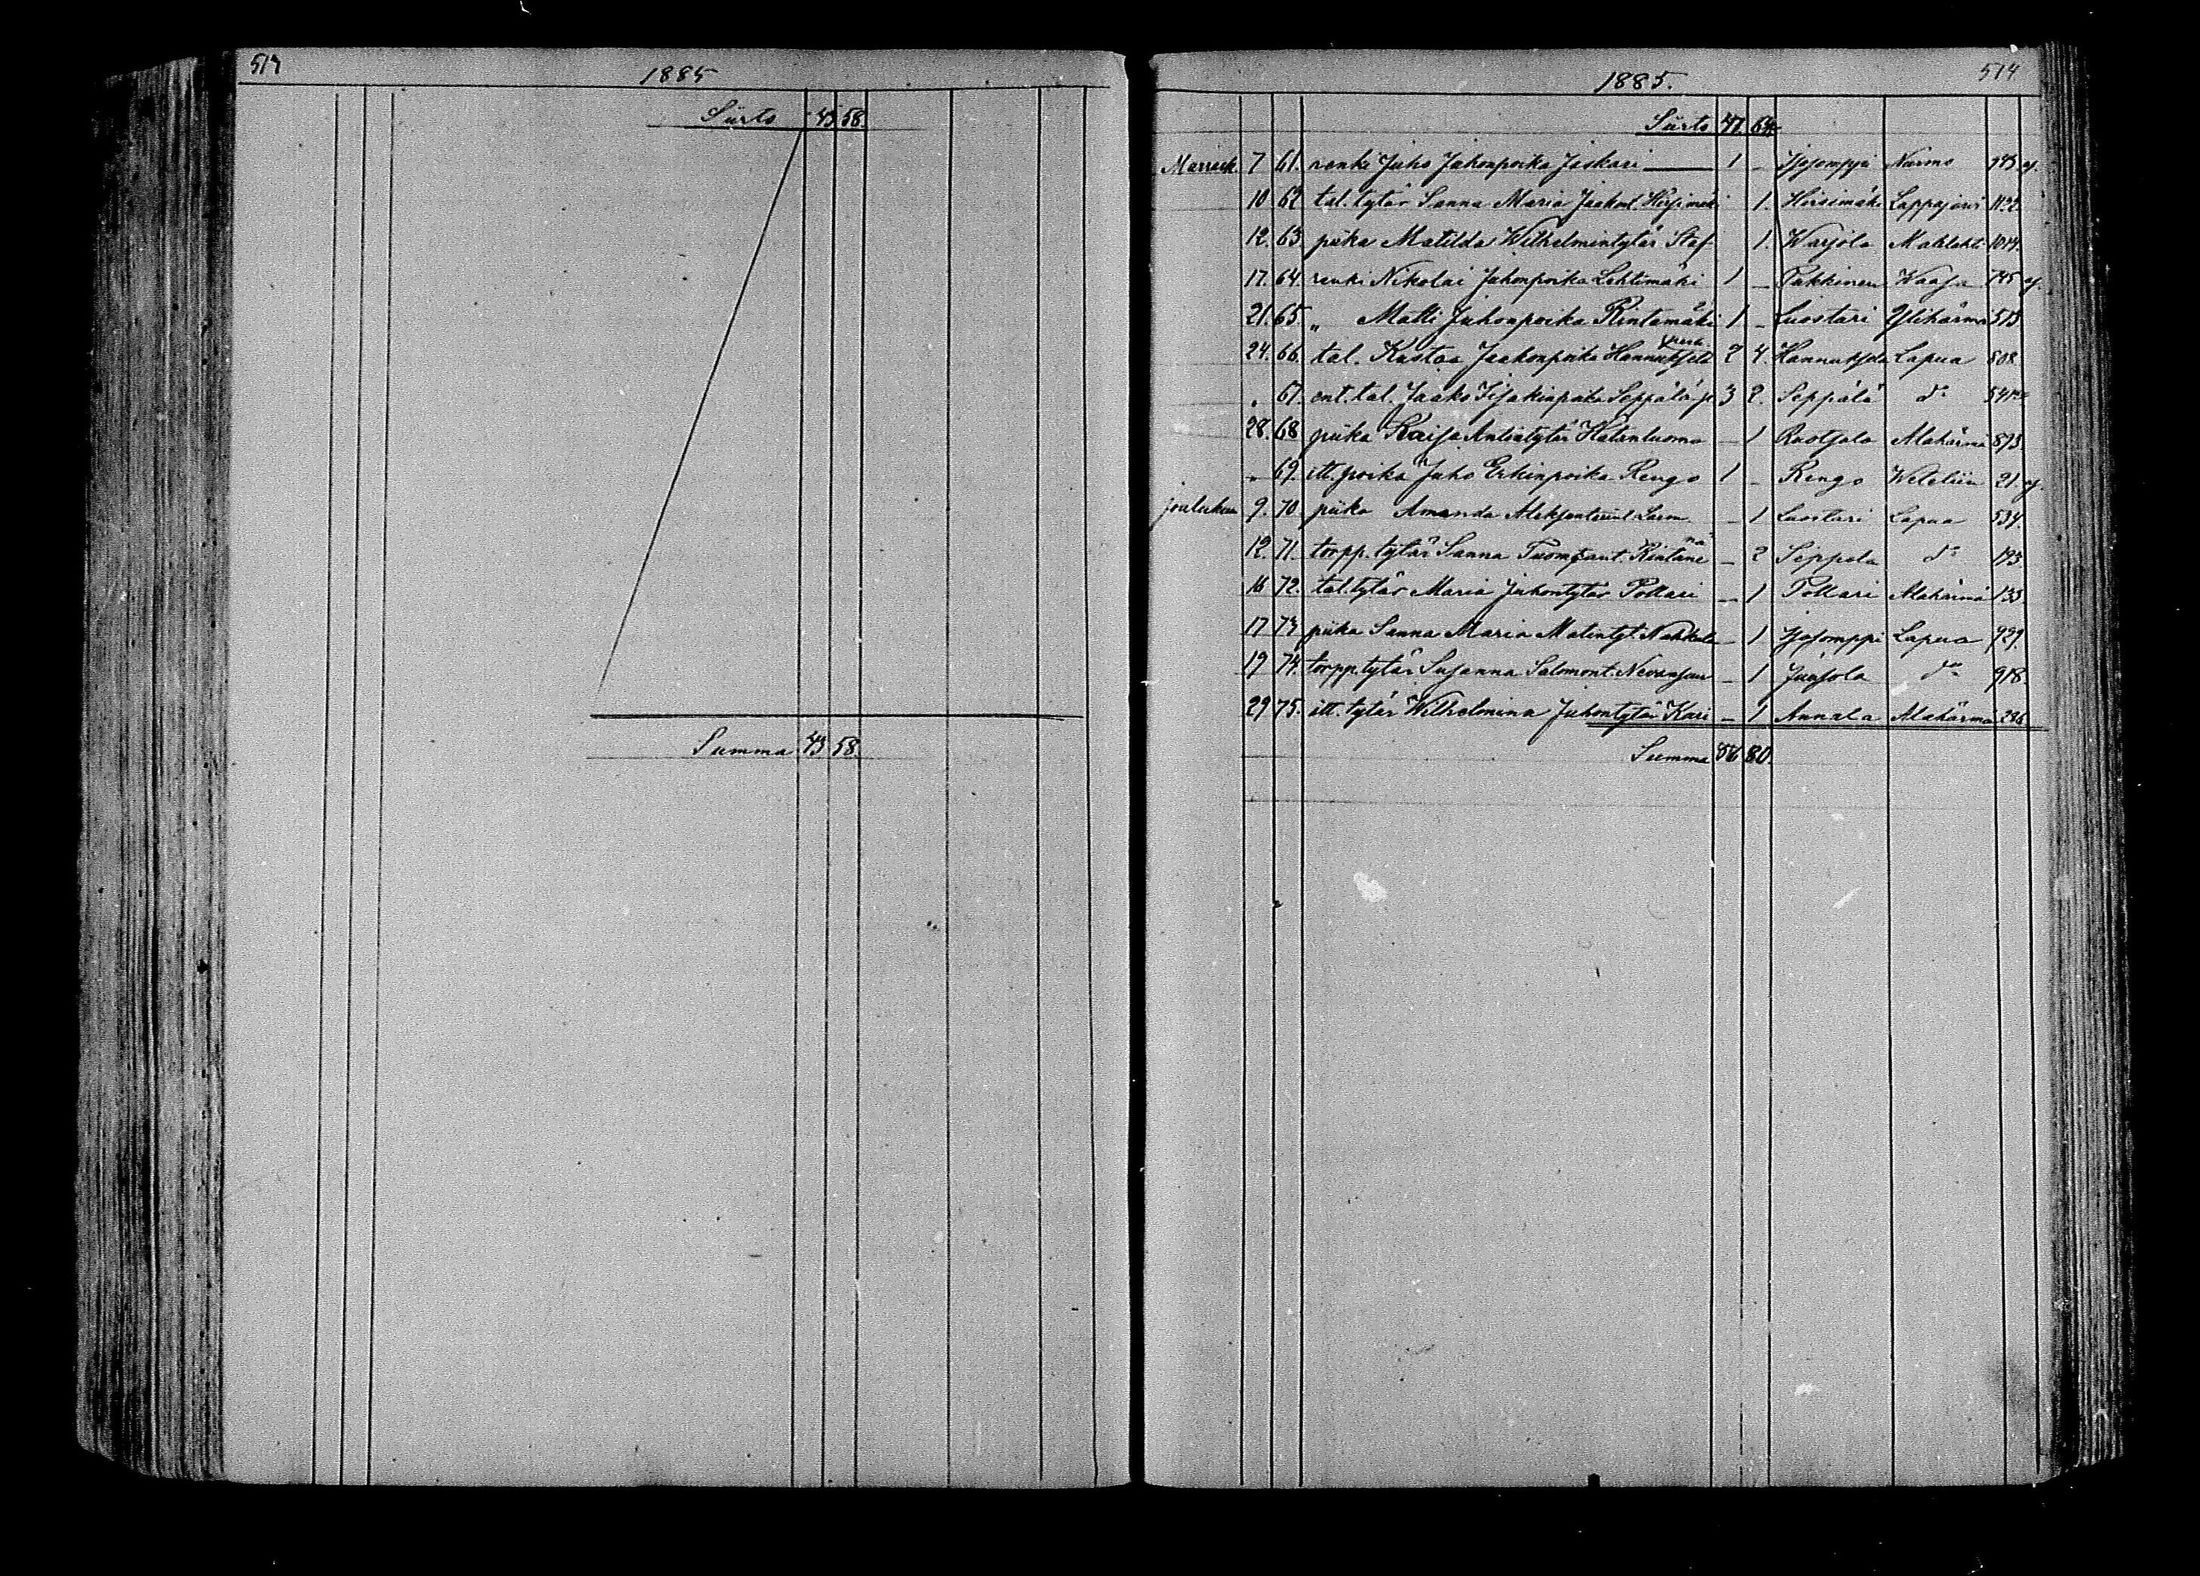 514
1885
Siirto 43 58.
Summa 43 58.
514
1885.
Siirto 47 64
Marrask. 7 61. renki Juho Juhonpoika Jiskari 1 - Isosomppi Nurmo
10 62 tal. tytär Sanna Maria Jaakont. Hirsimäki 1. Hirsimäki Lappajärvi 1122
12. 63. piika Matilda Wilhelmintytär Staf 1. Warjola 1014.
17. 64. renki Nikolai Juhonpoika Lehtimäki 1 - Pukkinen Waasa 745
21. 65. „ Matti Juhonpoika Rintamäki 1 - Luostari Ylihärmä 513
24. 66. tal. Kustaa Jaakonpoika Hannuksela 2 4. Hannuksela Lapua 508.
„ 67. ent. tal. Jaako Iisakinpoika Seppälä 3 2. Seppälä d:o
28. 68 piika Kaisa Antintytär Hatanluoma - 1 Ruotsala Alahärmä 873.
„ 69. itt. poika Juho Erkinpoika Rengo 1 - Rengo Weteliin 21.
joulukuu 9. 70. piika Amanda - 1 Luostari Lapua 534.
12. 71. torpp. tytär Sanna Tuomaant. - 2 Seppola d:o 193
16 72. tal. tytär Maria Juhontytär Pottari - 1 Pottari Alahärmä 133
17 73 piika Sanna Maria Matintyt. Nahkala - 1 Isosomppi Lapua 929.
19 74. torpp. tytär Susanna Salomont. - 1 Juusola d:o 918.
29 75. itt. tytär Wilhelmina Juhontytär Kari - 1 Annala Alahärmä 286
Summa 56 80.